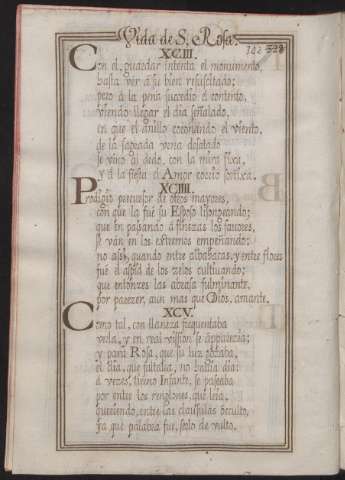 Vida de S. Rosa.
XCIII.
Con el guardar intenta el monumento,
hasta ver à su bien resuscitado;
pero à la pena sucediò el contento,
viendo llegar el dia señalado,
en que el anillo coronando el viento,
de la sagrada urna desatado
se vino al dedo, con la mira fixa,
y à la fiesta d Amor corriò sortixa.
XCIIII.
Prodigio precursor de otros mayores,
con que la fuè su Esposo lisongeando;
que en pasando à finezas los favores,
se vàn en los extremos empeñando:
no assi, quando entre albahacas, y entre flores
fuè el aspid de los zelos cultivando;
que entonzes las abrasa fulminante,
por parezer, aun mas que Dios, amante.
XCV.
Como tal, con llaneza frequentaba
verla, y en real vission se apparecia;
y para Rosa, que su luz gozaba,
el dia, que faltaba, no havia dia:
à vezes, tierno Infante, se paseaba
por entre los renglones, que leìa,
queriendo, entre las clausulas oculto,
ya que palabra fue, serlo de vulto.